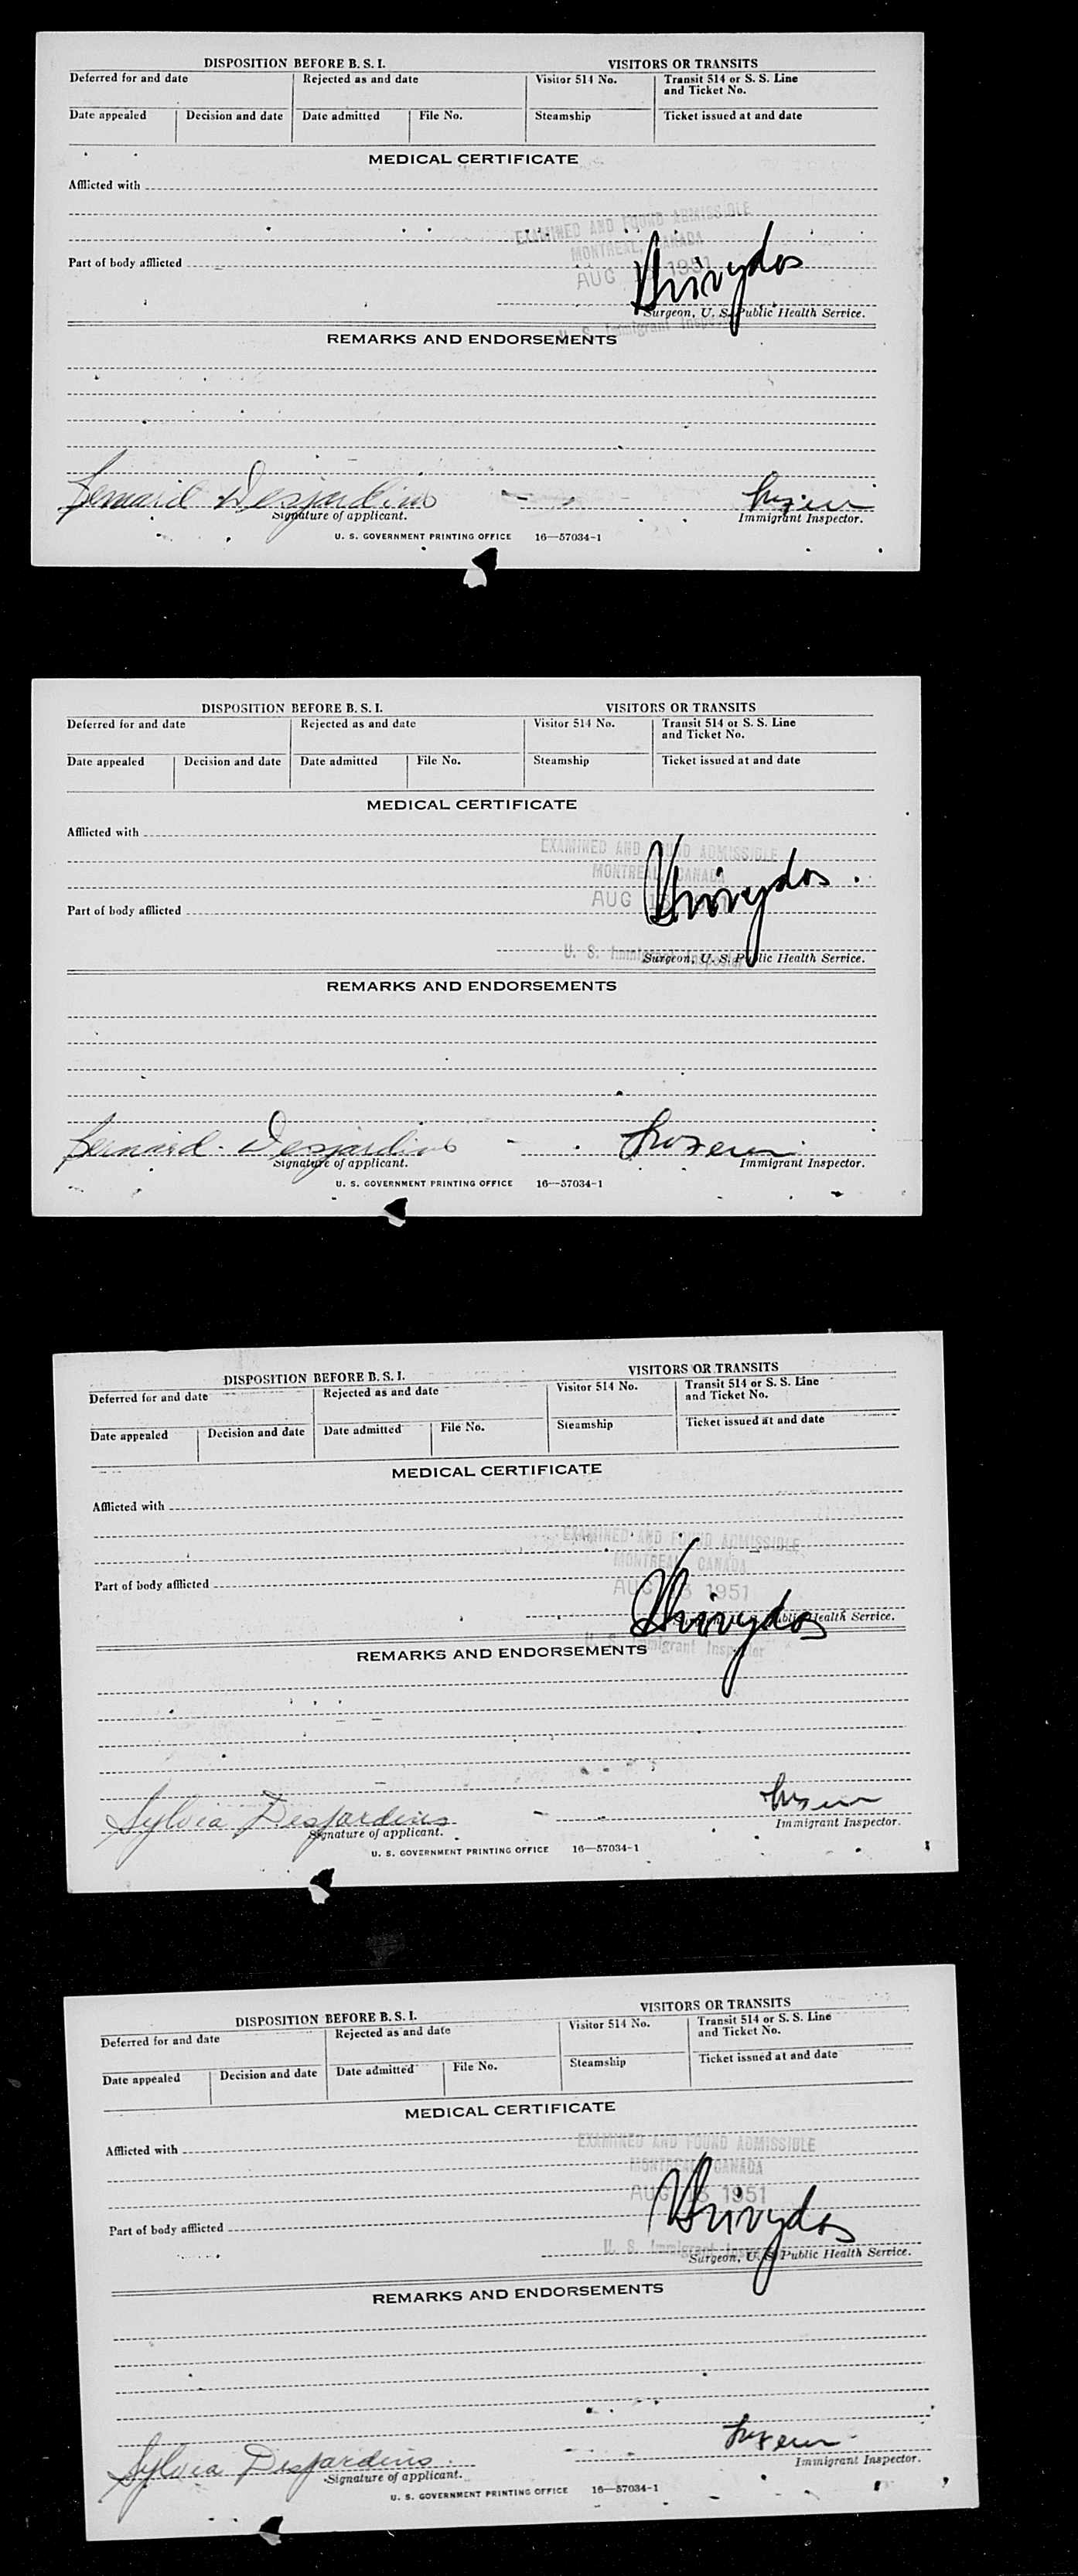 DISPOSITION BEFORE B. S. I.
VISITORS OR TRANSITS
Deferred for and date
Rejected as and date
Visitor 514 No.
Transit 514 or S. S. Line
and Ticket No.
Date appealed
Decision and date
Date admitted
File No.
Steamship
Ticket issued at and date
MEDICAL CERTIFICATE
Afflicted with
EXAMINED AND FOUND ADMISSIBLE
MONTREAL, CANADA
Part of body afflicted
AUG 1951
Surgeon, U. S. Public Health Service.
U. S. Immigrant Inspector
REMARKS AND ENDORSEMENTS
Bernard Desjardins
Signature of applicant.
Immigrant Inspector.
U. S. GOVERNMENT PRINTING OFFICE 16—57034-1
DISPOSITION BEFORE B. S. I.
VISITORS OR TRANSITS
Deferred for and date
Rejected as and date
Visitor 514 No.
Transit 514 or S. S. Line
and Ticket No.
Date appealed
Decision and date
Date admitted
File No.
Steamship
Ticket issued at and date
MEDICAL CERTIFICATE
Afflicted with
EXAMINED AND FOUND ADMISSIBLE
MONTREAL, CANADA
AUG
Part of body afflicted
U. S. Immigrant Inspector
Surgeon, U. S. Public Health Service.
REMARKS AND ENDORSEMENTS
Bernard Desjardins
Signature of applicant.
Immigrant Inspector.
U. S. GOVERNMENT PRINTING OFFICE 16—57034-1
DISPOSITION BEFORE B. S. I.
VISITORS OR TRANSITS
Deferred for and date
Rejected as and date
Visitor 514 No.
Transit 514 or S. S. Line
and Ticket No.
Date appealed
Decision and date
Date admitted
File No.
Steamship
Ticket issued at and date
MEDICAL CERTIFICATE
Afflicted with
EXAMINED AND FOUND ADMISSIBLE
MONTREAL, CANADA
Part of body afflicted
AUG 1951
Public Health Service.
U. S. Immigrant Inspector
REMARKS AND ENDORSEMENTS
Sylvia Desjardins
Signature of applicant.
Immigrant Inspector.
U. S. GOVERNMENT PRINTING OFFICE 16—57034-1
DISPOSITION BEFORE B. S. I.
VISITORS OR TRANSITS
Deferred for and date
Rejected as and date
Visitor 514 No.
Transit 514 or S. S. Line
and Ticket No.
Date appealed
Decision and date
Date admitted
File No.
Steamship
Ticket issued at and date
MEDICAL CERTIFICATE
Afflicted with
EXAMINED AND FOUND ADMISSIBLE
MONTREAL, CANADA
AUG 1951
Part of body afflicted
U. S. Immigrant Inspector
Surgeon, U. S. Public Health Service.
REMARKS AND ENDORSEMENTS
Sylvia Desjardins
Signature of applicant.
Immigrant Inspector.
U. S. GOVERNMENT PRINTING OFFICE 16—57034-1